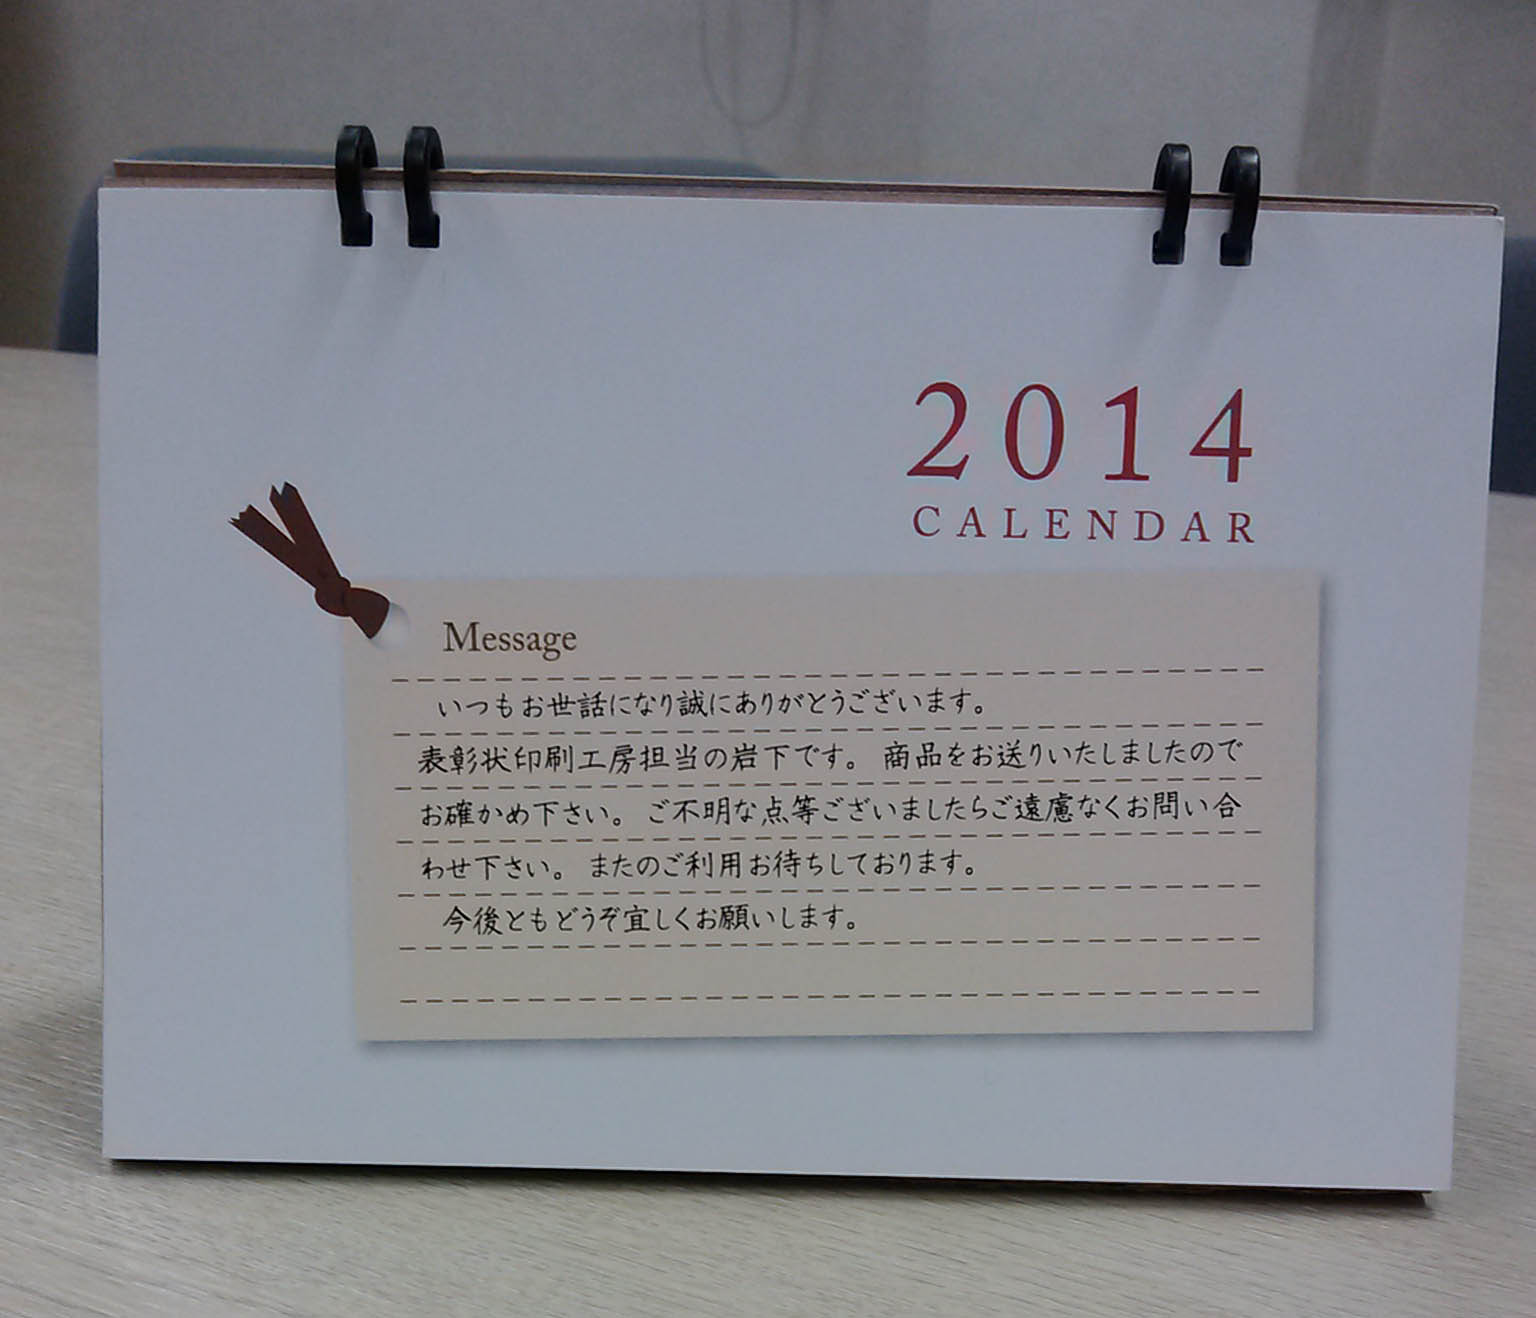 2014
CALENDAR
Message
いつもお世話になり誠にありがとうございます。
表彰状印刷工房担当の岩下です。 商品をお送りいたしましたので
お確かめ下さい。 ご不明な点等ございましたらご遠慮なくお問い合
わせ下さい。 またのご利用お待ちしております。
今後ともどうぞ宜しくお願いします。